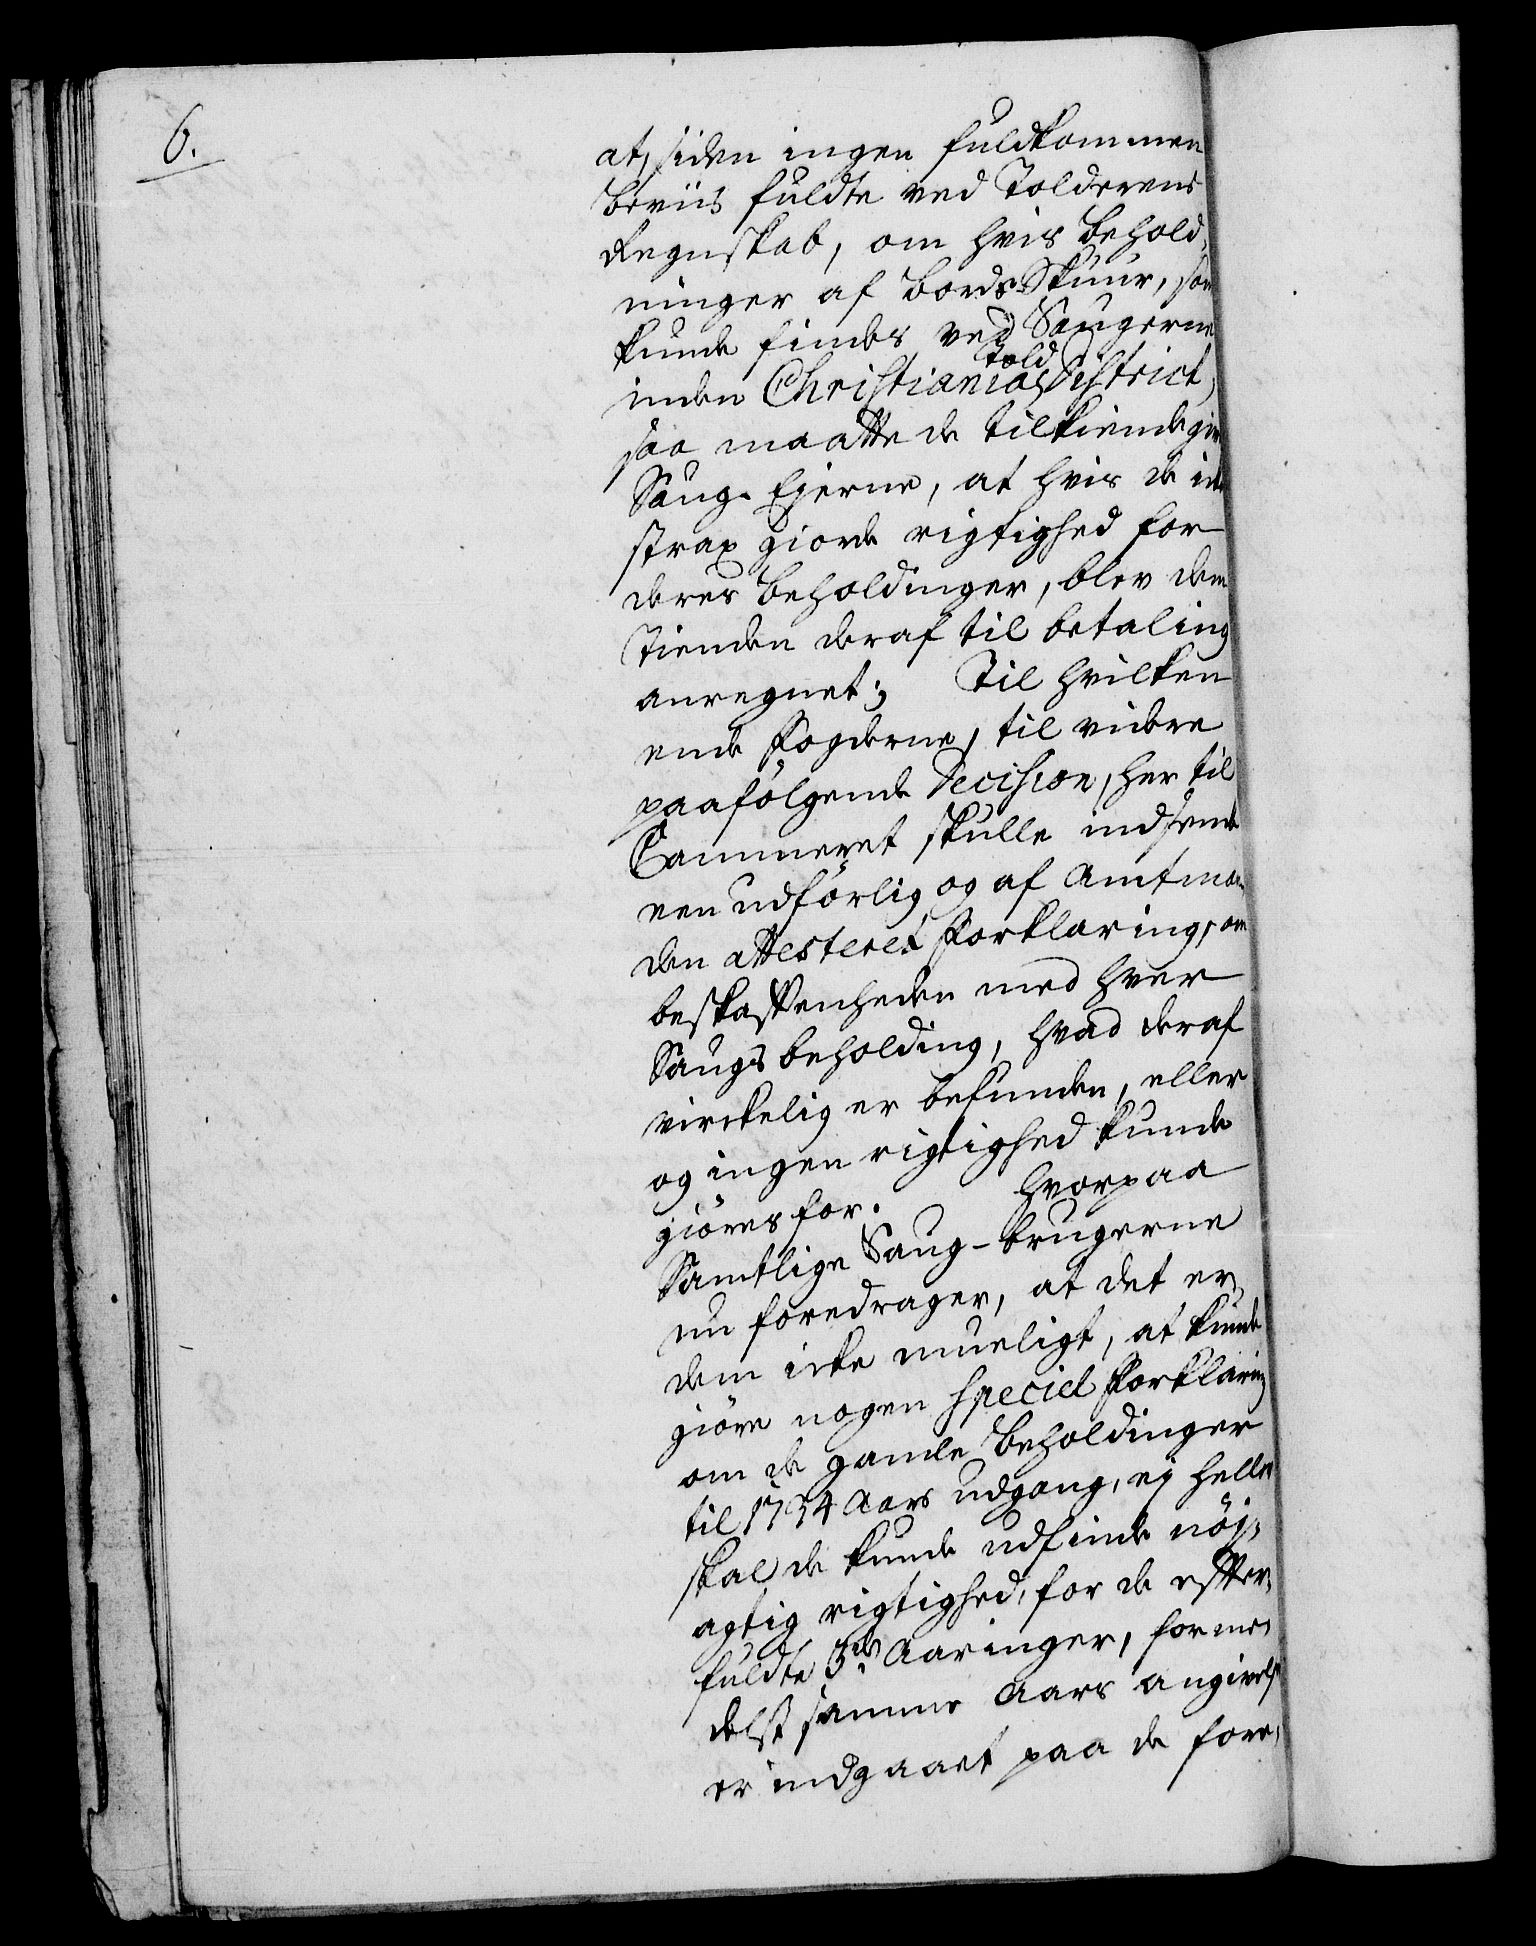 6.
at, siden ingen fuldkommen
beviis fuldte ved Tolderens
Regnskab, om hvis behold-
ninger af bord-Skuur, som
kunde findes ved Saugerne
inden Christianias Told District,
saa maatte de tilkiendegive
Saug-Ejerne, at hvis de icke
strax giorde rigtighed for
deres beholdinger, blev dem
Tienden deraf til betaling
anregnet; Til hvilken
ende Fogderne, til videre
paafølgende Decision, her til
Cammeret skulle indsende
een udførlig og af Amtman-
den attesteret Forklaring, om
beskaffenheden med hver
Saugs beholding, hvad deraf
virckelig er befunden, eller
og ingen rigtighed kunde
giøres for. Hvorpaa
Samtlige Saug-brugerne
nu foredrager, at det er
dem icke mueligt, at kunde
giøre nogen Speciel Forklaring
om de gamle beholdinger
til 1734 Aars udgang, ej heller
skal de kunde udfinde nøj-
agtig rigtighed, for de effter-
fuldte 3de Aaringer, forme-
delst samme Aars angivelse
er indgaaet paa de fore-